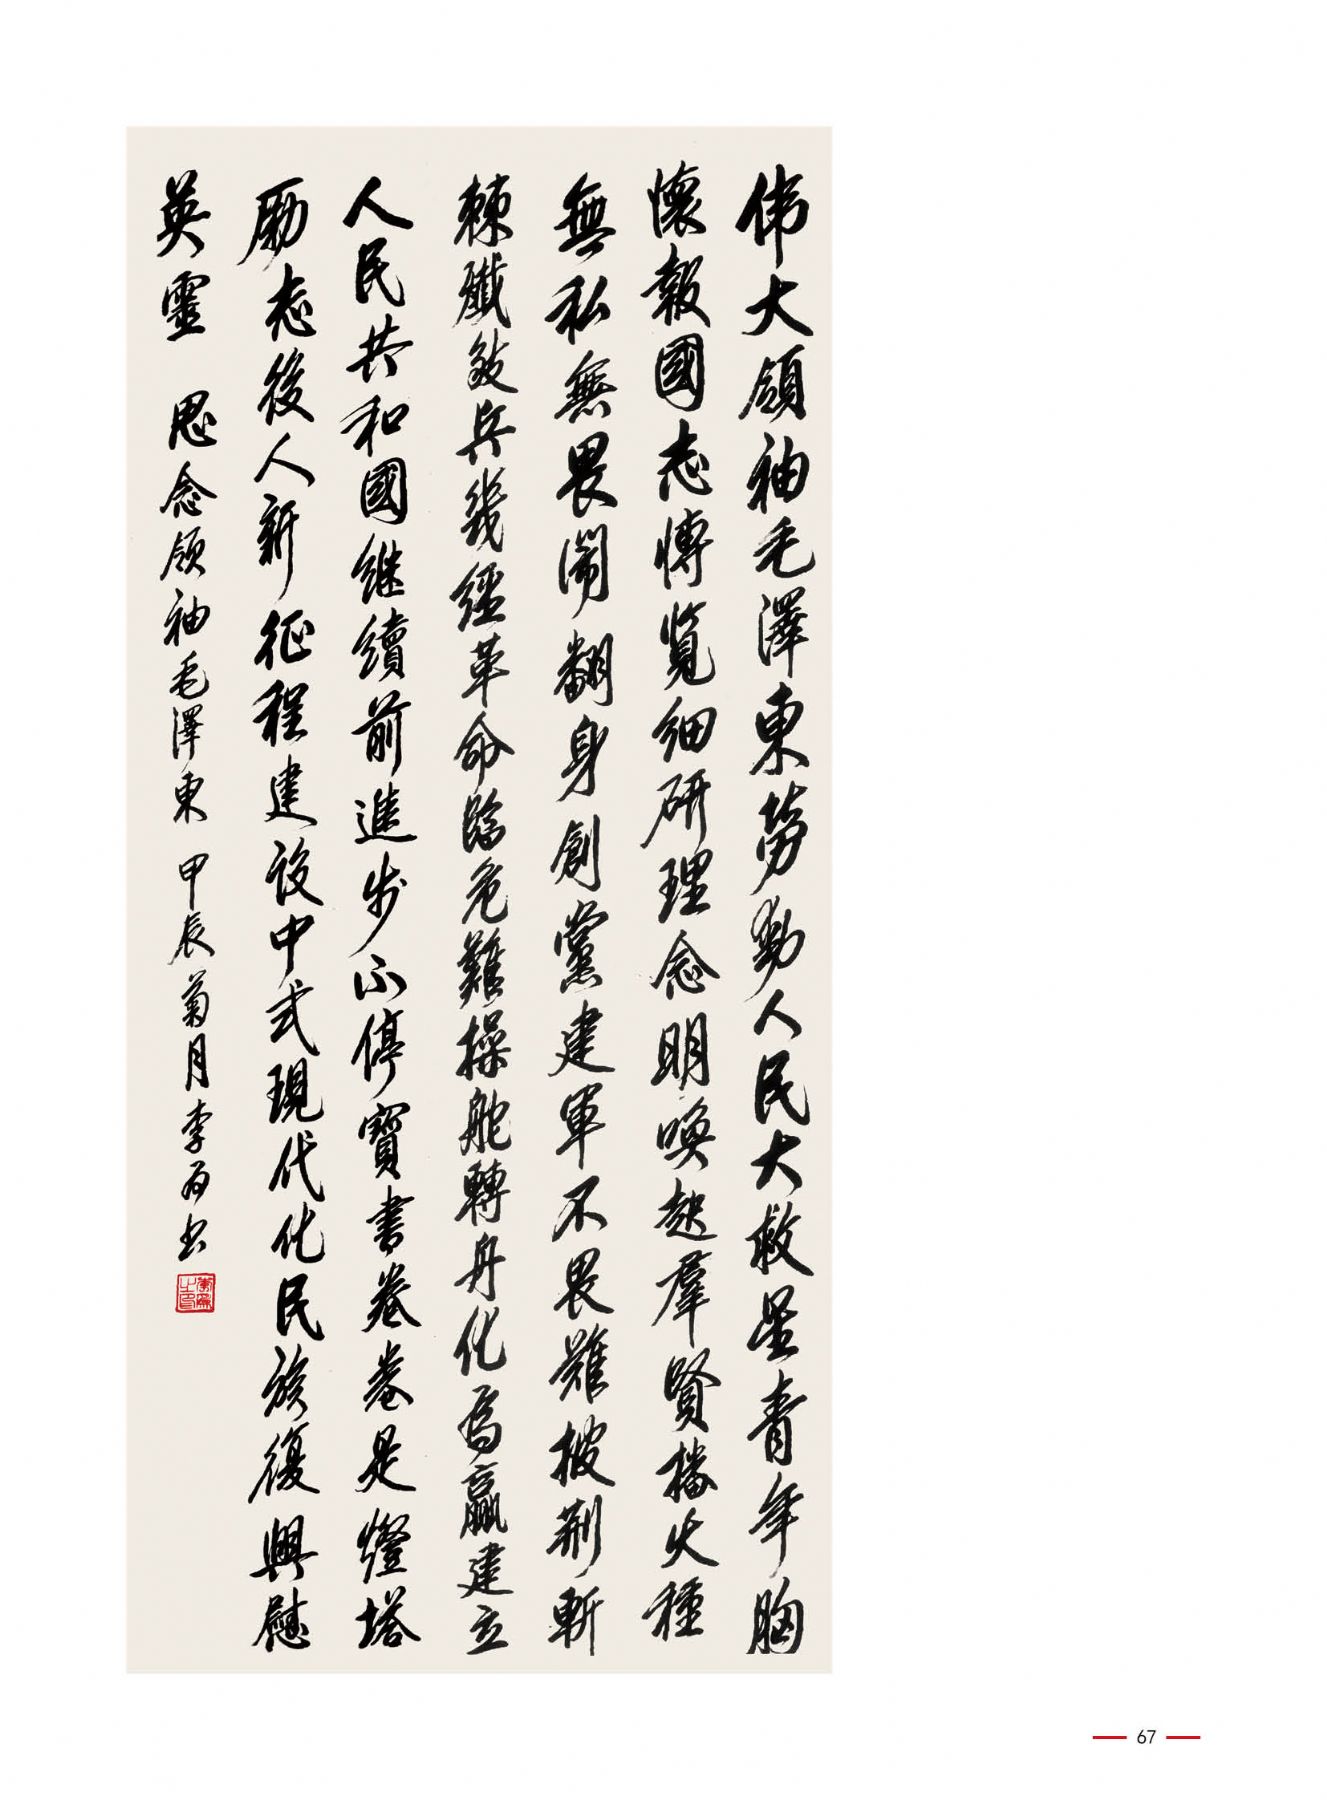 伟大領袖毛澤東勞動人民大救星青年胸
懷報國志博覽細研理念明喚起羣賢播火種
無私無畏鬧翻身創黨建軍不畏難披荆斬
棘殲敌兵幾經革命臨危難操舵轉舟化為贏建立
人民共和國继續前進步不停寶書卷卷是燈塔
勵志後人新征程建设中式現代化民族復興慰
英靈 思念領袖毛澤東 甲辰菊月李 书
67